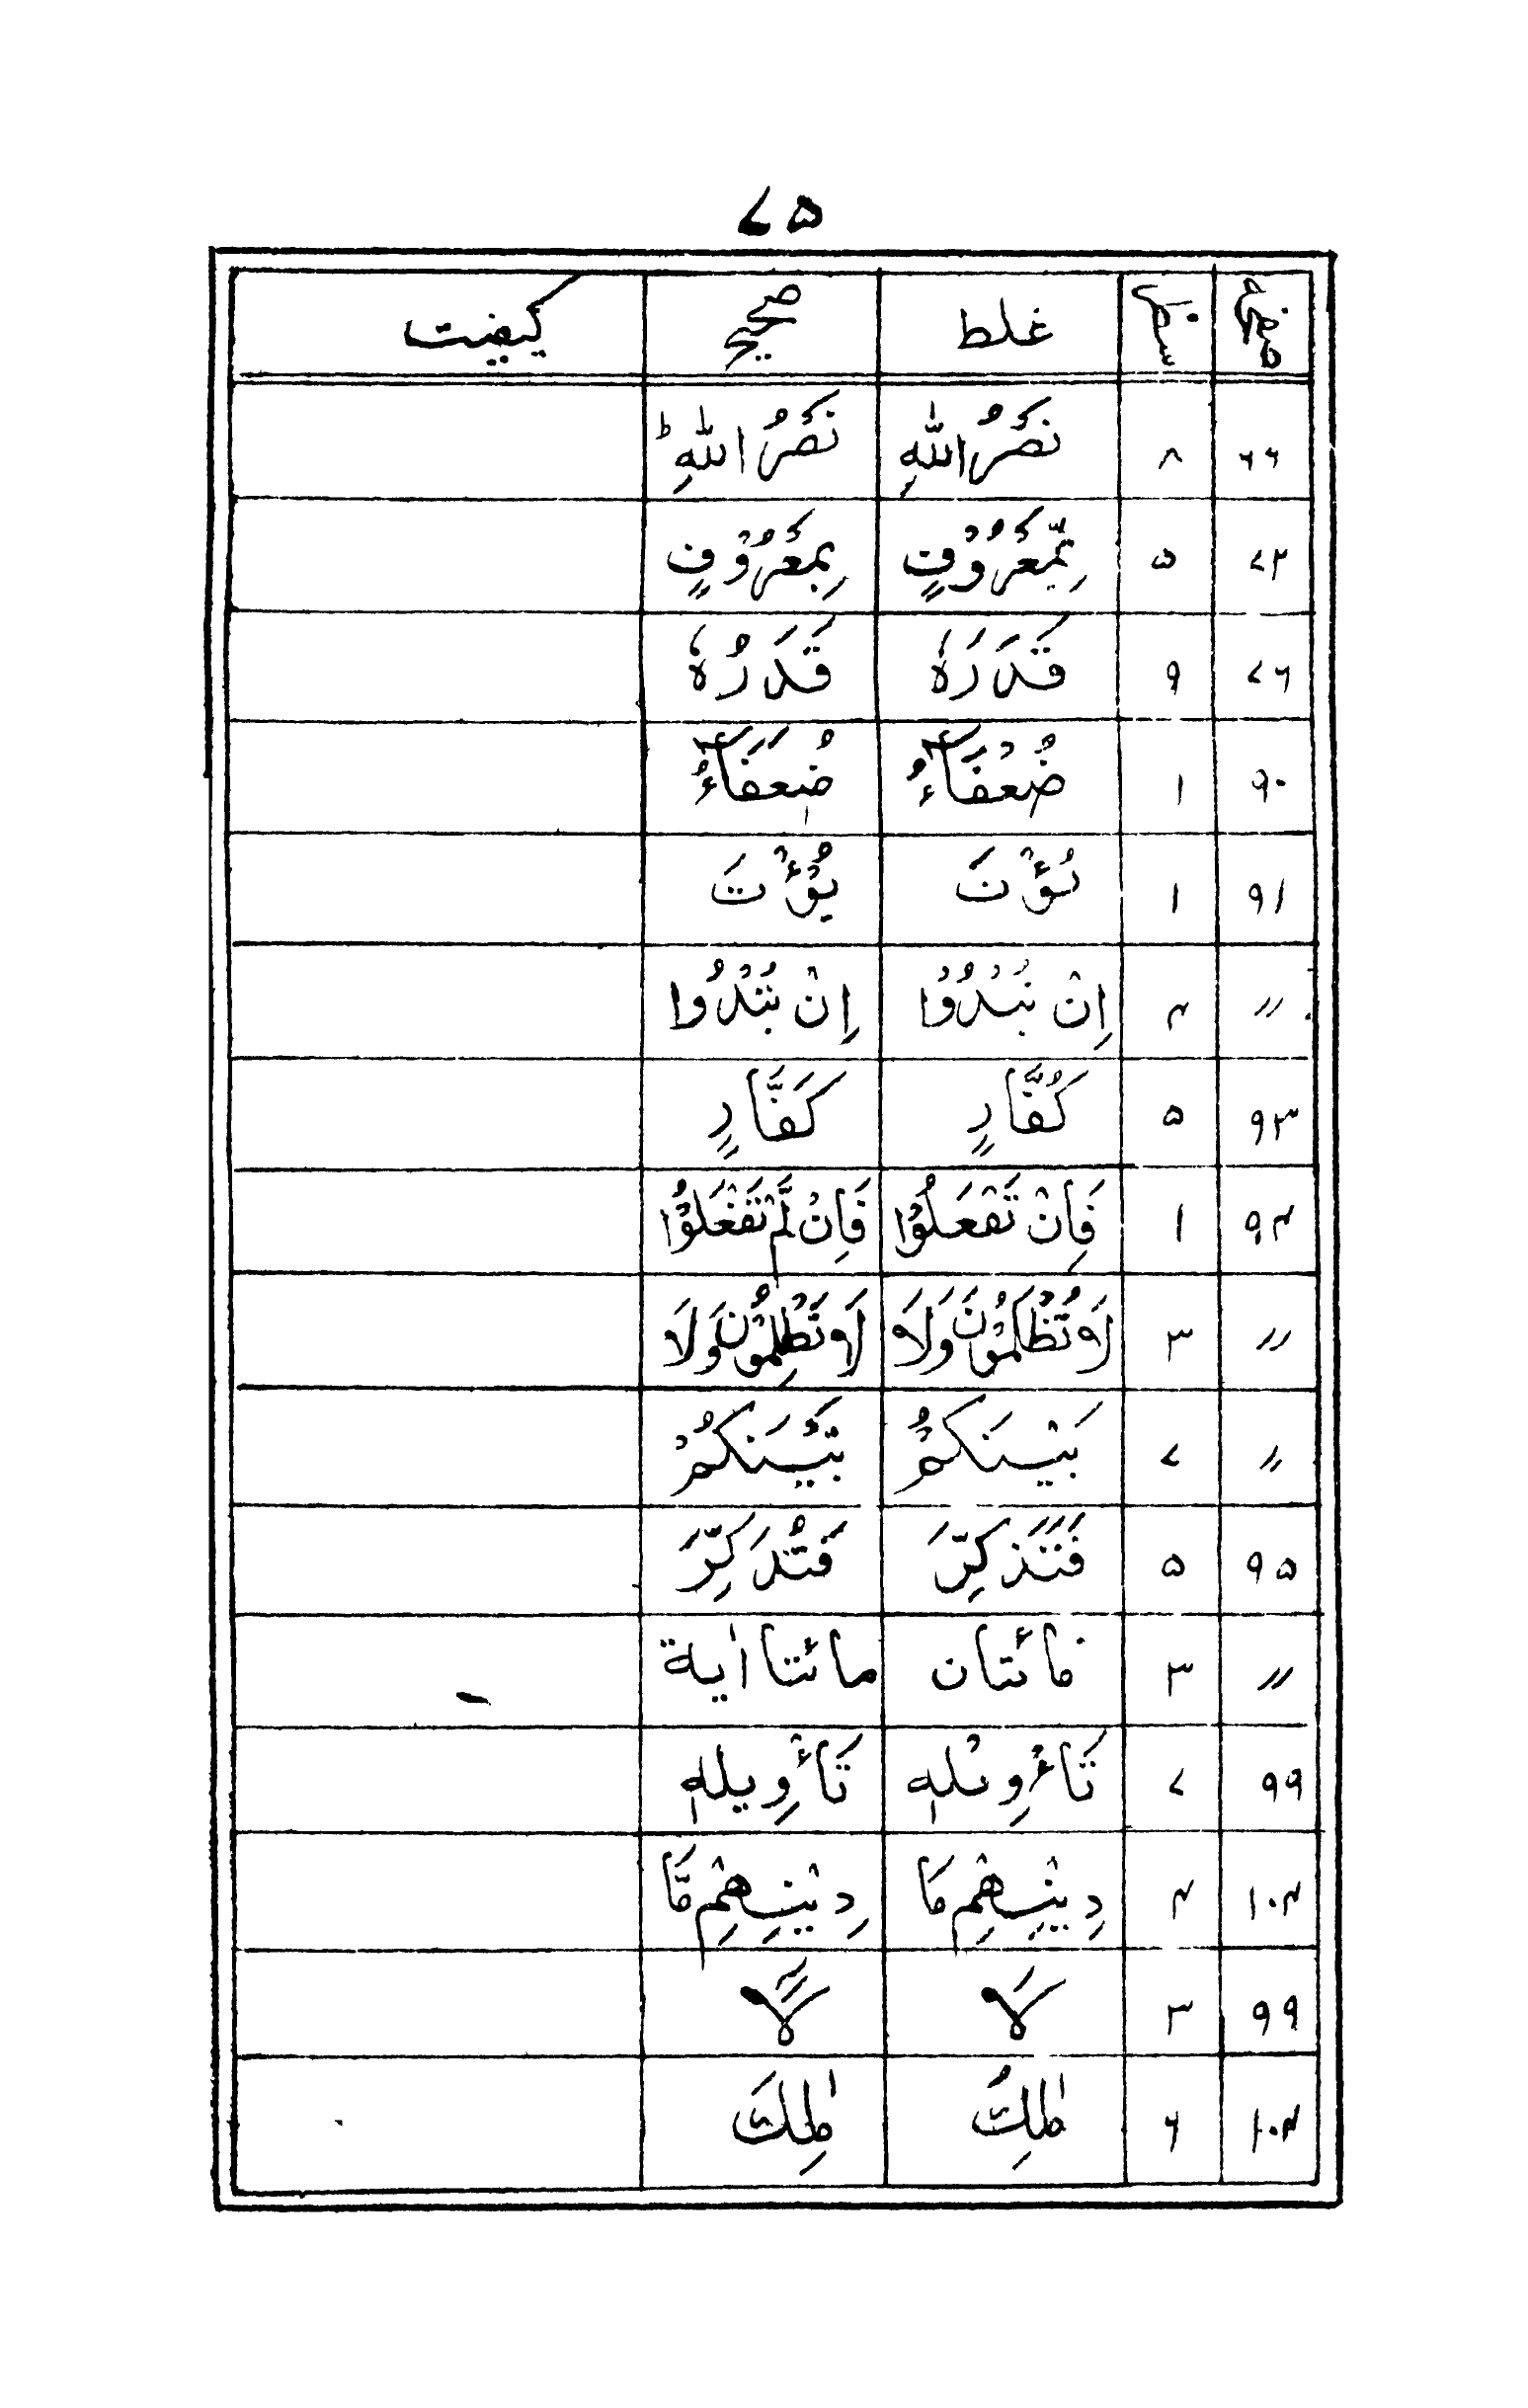 ۷۵
صفحہ سطر غلط صحیح کیفیت
۶۶ ۸ نَصْرُ اللّٰهِ نَصْرُ اللّٰهِ ؕ
۷۲ ۵ بِّمَعْرُوْفٍ بِمَعْرُوْفٍ
۷۶ ۹ قَدَرَهٗ قَدَرُهٗ
۹۰ ۱ ضُعْفَآءُ ضُعَفَآءُ
۹۱ ۱ یُؤْتَ یُؤْتَ
〃 ۴ اِنْ تُبْدُوْا اِنْ تُبْدُوا
۹۳ ۵ كُفَّارٍ كَفَّارٍ
۹۴ ۱ فَاِنْ تَفْعَلُوْا فَاِنْ لَّمْ تَفْعَلُوْا
〃 ۳ لَا تُظْلَمُوْنَ وَلَا لَا تَظْلِمُوْنَ وَلَا
〃 ۷ بَیْنَكُمْ بَّیْنَكُمْ
۹۵ ۵ فَتَذَكِّرَ فَتُذَكِّرَ
〃 ۳ مائتان مائتا اٰیة
۹۹ ۷ تَاْوِیْلِهٖ تَاْوِیلِهٖ
۱۰۴ ۴ دِیْنِهِمْ مَا دِیْنِهِمْ مَّا
۹۹ ۳ لَا لَّا
۱۰۴ ۶ مٰلِكُ مٰلِكَ